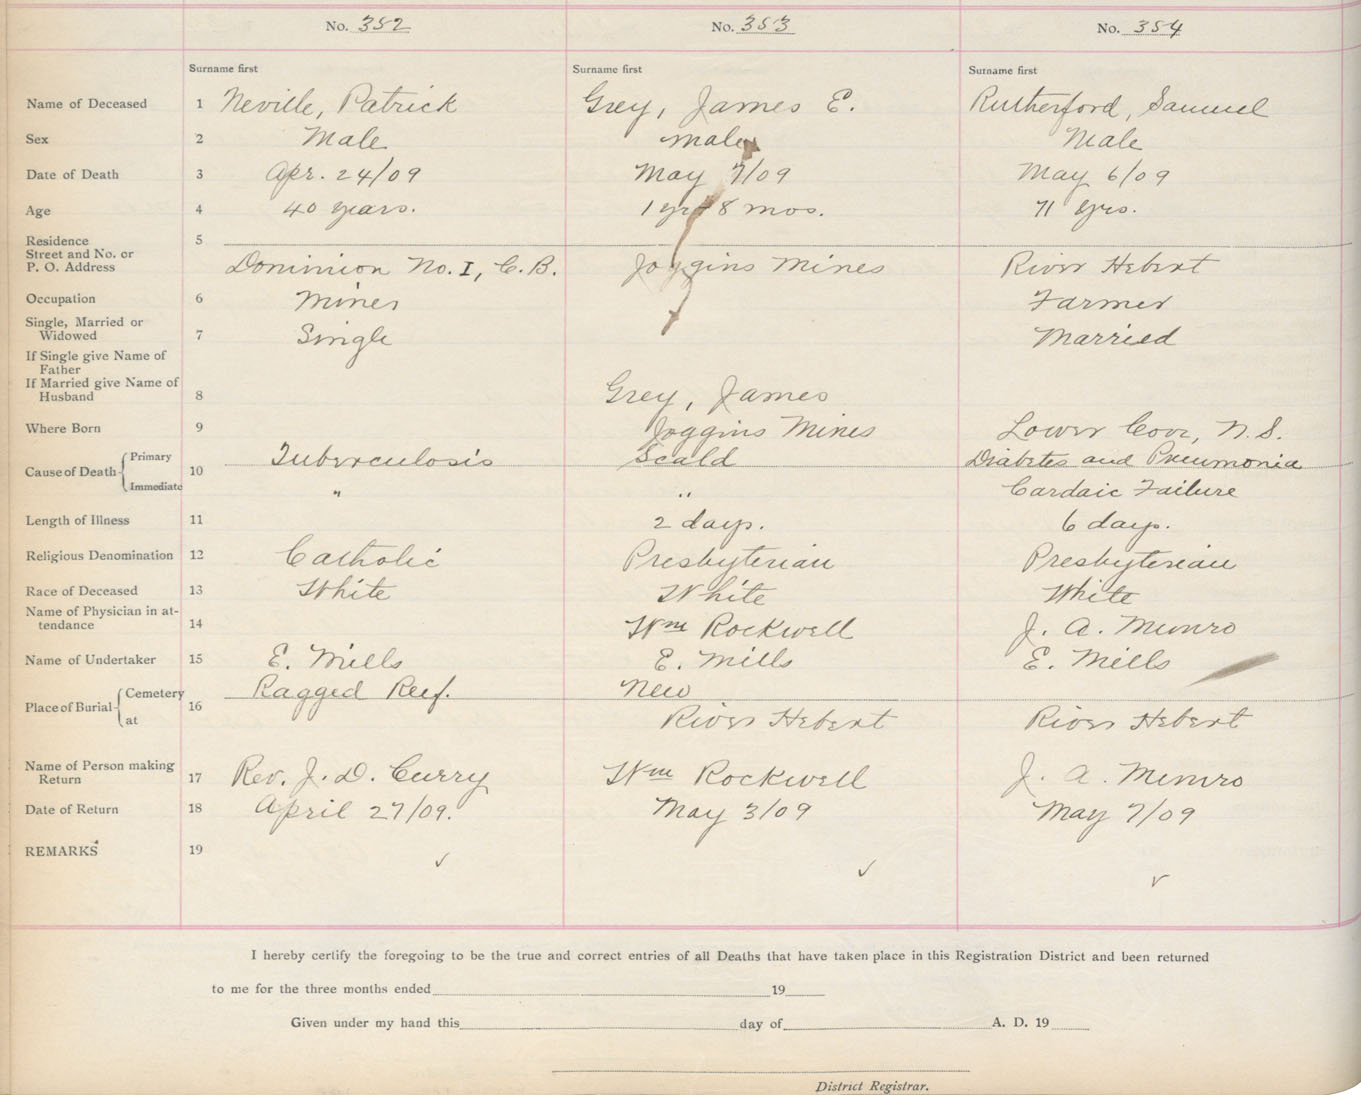 No. 352 No. 353 No. 354
Surname first Surname first Surname first
Name of Deceased 1 Neville, Patrick Grey, James E. Rutherford, Samuel
Sex 2 Male male Male
Date of Death 3 Apr. 24/09 May 7/09 May 6/09
Age 4 40 years. 1 yr + 8 mos. 71 yrs.
Residence 5
Street and No. or
P. O. Address Dominion No. I, C.B. Joggins Mines River Hebert
Occupation 6 Miner Farmer
Single, Married or
Widowed 7 Single Married
If Single give Name of
Father
If Married give Name of
Husband 8 Grey, James
Where Born 9 Joggins Mines Lower Cove, N.S.
Cause of Death Primary 10 Tuberculosis Scald Diabetes and Pneumonia
Immediate " " Cardaic Failure
Length of Illness 11 2 days. 6 days.
Religious Denomination 12 Catholic Presbyterian Presbyterian
Race of Deceased 13 White White White
Name of Physician in at-
tendance 14 Wm Rockwell J. A. Munro
Name of Undertaker 15 E. Mills E. Mills E. Mills
Place of Burial Cemetery 16 Ragged Reef. New
at River Hebert River Hebert
Name of Person making
Return 17 Rev. J. D. Curry Wm Rockwell J. A. Munro
Date of Return 18 April 27/09. May 3/09 May 7/09
REMARKS 19
I hereby certify the foregoing to be the true and correct entries of all Deaths that have taken place in this Registration District and been returned
to me for the three months ended 19
Given under my hand this day of A. D. 19
District Registrar.